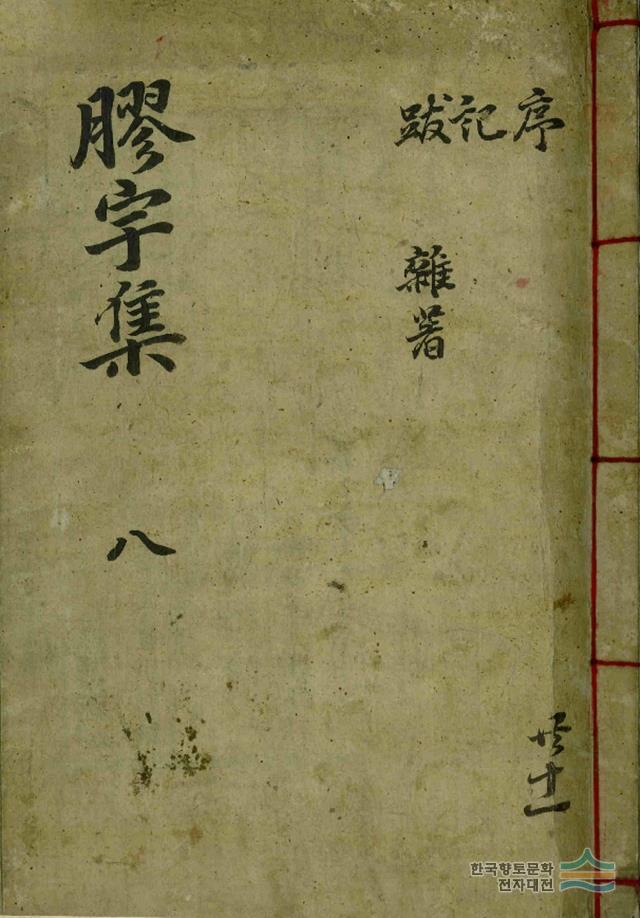 序記跋
雜著
膠宇集 八
共十一
한국향토문화
전자대전